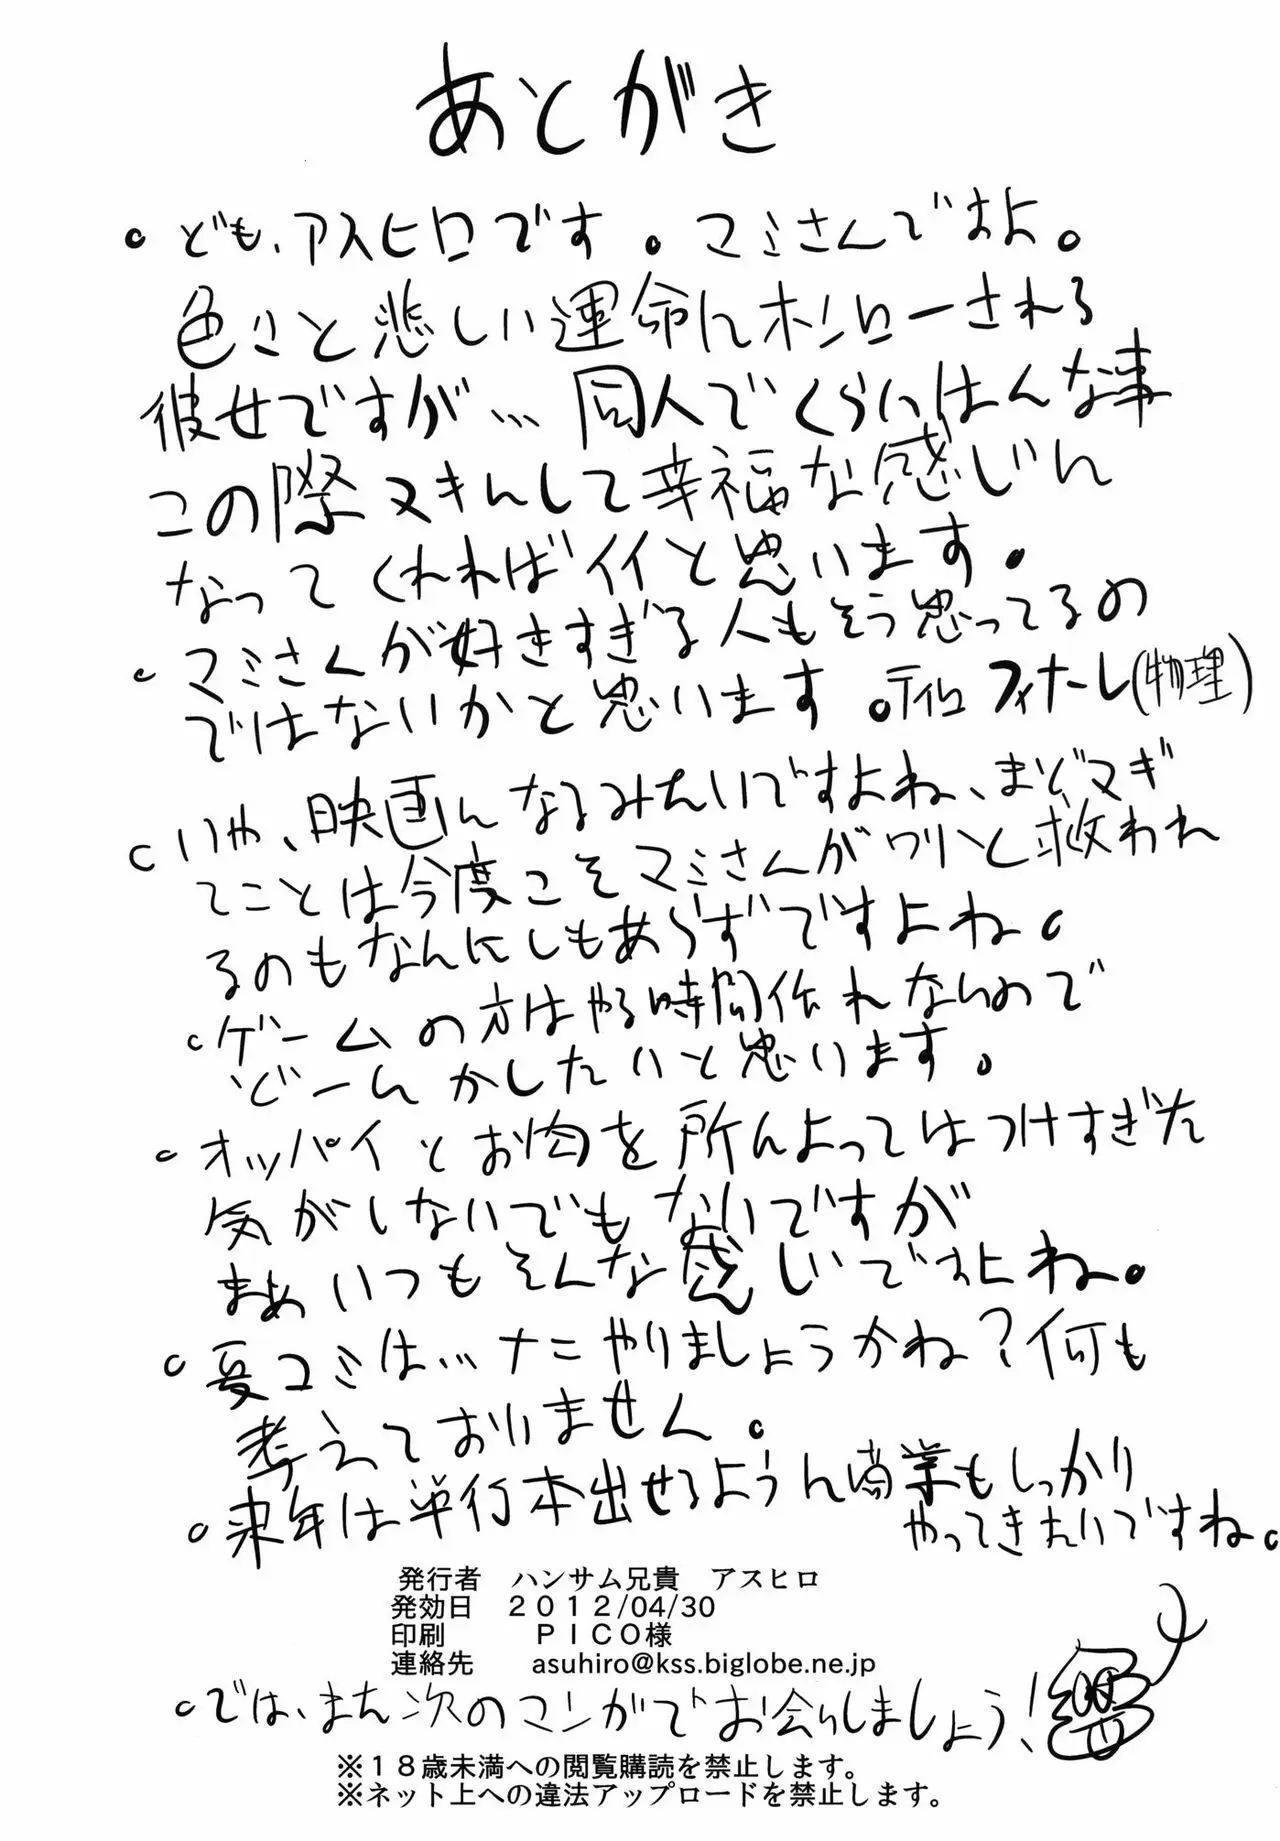 あとがき
ども、アスヒロです。マミさんですよ。
色々と悲しい運命にホンローされる
彼女ですが… 同人でくらいはんな事
この際ヌキにして幸福な感じに
なってくれればイイと思います。
マミさんが好きすぎる人もそう思ってるの
ではないかと思います。ティロ フィナーレ(物理)
いや、映画になるみたいですよね、まどマギ
てことは今度こそマミさんがワリと救われ
るのもなんにしもあらずですよね。
ゲームの方はやる時間作れないので
どーにかしたいと思います。
オッパイとお肉を所によってはつけすぎた
気がしないでもないですが
まぁいつもそんな感じですよね。
夏コミは…ナニやりましょうかね？何も
考えておりません。
来年は単行本出せるように商業もしっかり
やってきたいですね。
発行者　ハンサム兄貴　アスヒロ
発効日　２０１２/04/30
印刷　ＰＩＣＯ様
連絡先　asuhiro@kss.biglobe.ne.jp
では、また次のマンガでお会いしましょう！
※１８歳未満への閲覧購読を禁止します。
※ネット上への違法アップロードを禁止します。